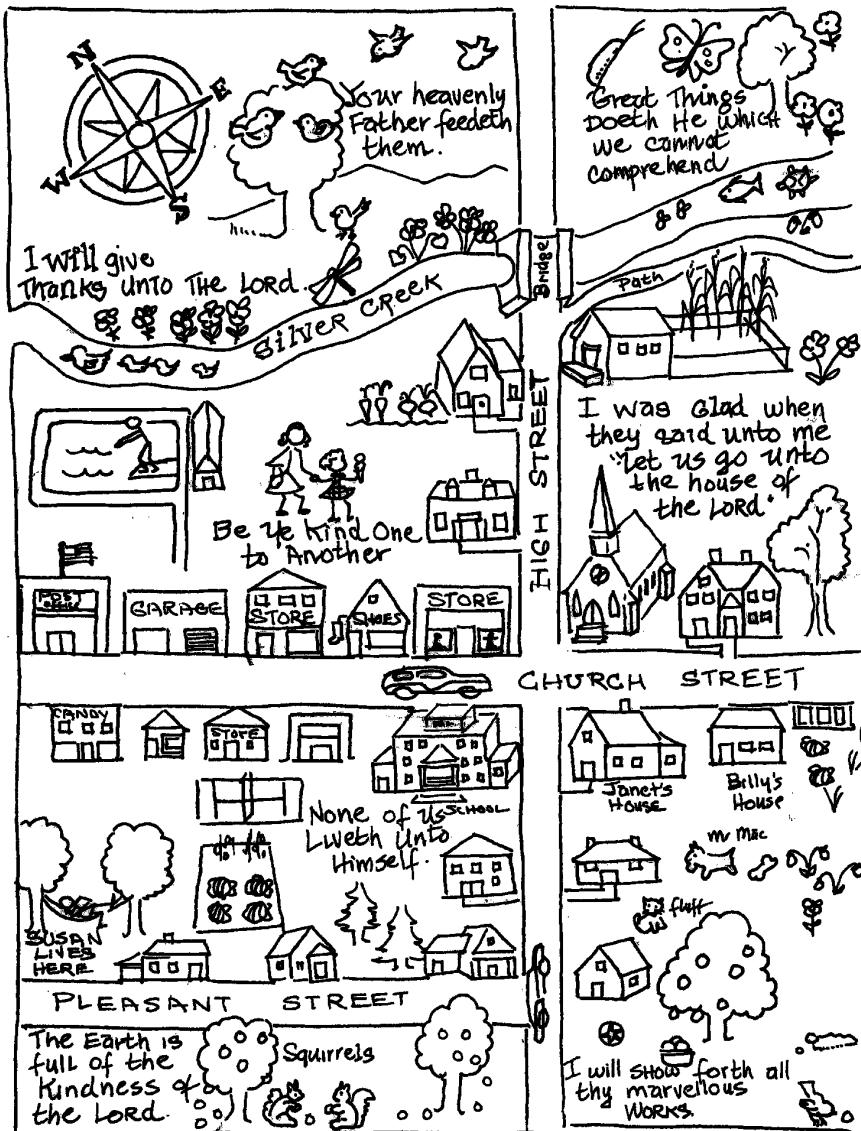 N
E
W
S
Your heavenly
Father feedeth
them.
Great Things
Doeth He which
we cannot
comprehend
I will give
Thanks unto The Lord.
Silver Creek
Bridge
Path
HIGH STREET
I was Glad when
they said unto me
"let us go unto
the house of
the Lord"
Be Ye Kind One
to Another
POST
OFFICE
GARAGE
STORE
SHOES
STORE
CHURCH STREET
CANDY
STORE
SCHOOL
Janet's
House
Billy's
House
None of us
Liveth Unto
Himself.
Mr Mac
fluff
SUSAN
LIVES
HERE
PLEASANT STREET
The Earth is
full of the
Kindness of
the Lord.
Squirrels
I will show forth all
thy marvellous
works.